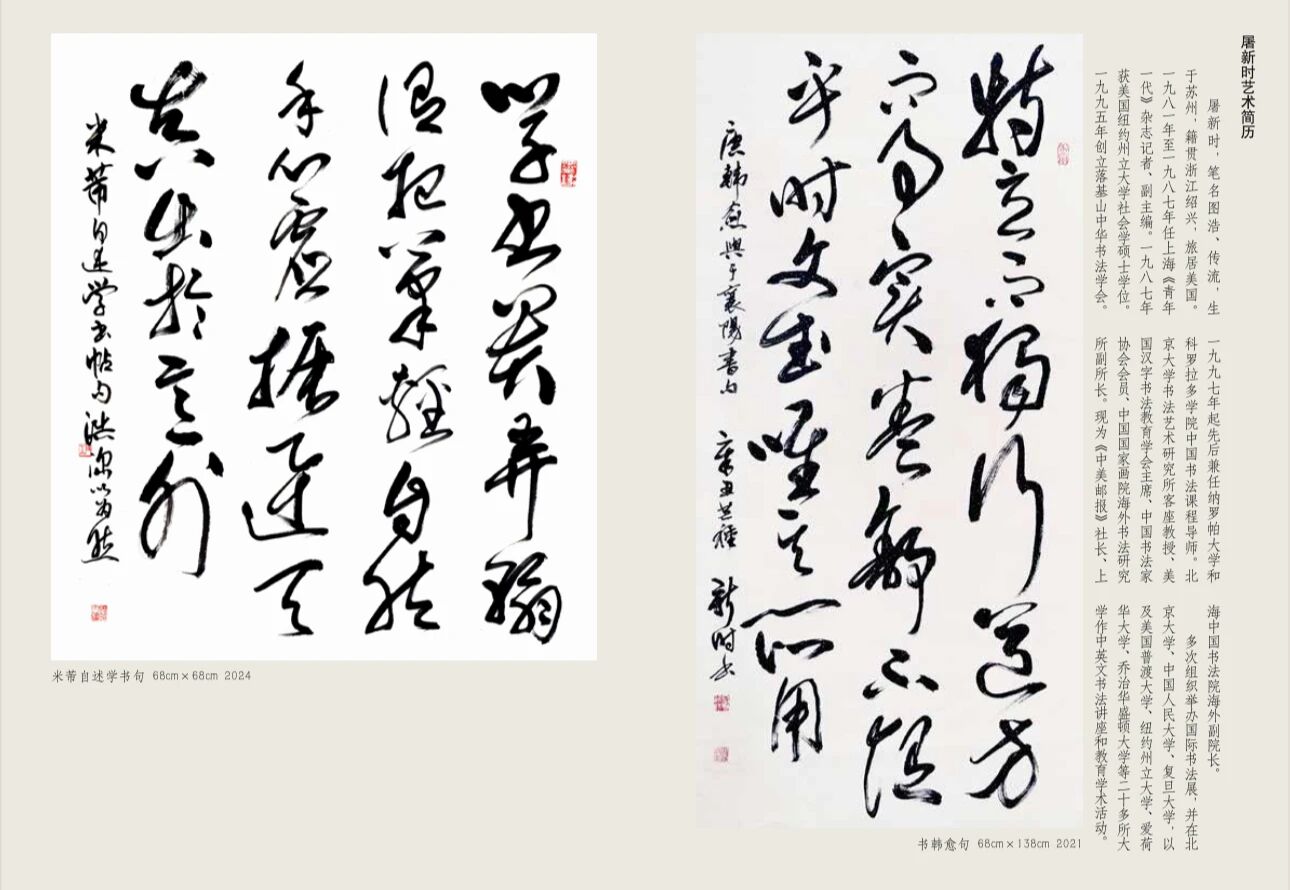 屠新时艺术简历
屠新时，笔名图浩、传流，生
于苏州，籍贯浙江绍兴，旅居美国。
一九八一年至一九八七年任上海《青年
一代》杂志记者、副主编。一九八七年
获美国纽约州立大学社会学硕士学位。
一九九五年创立落基山中华书法学会。
一九九七年起先后兼任纳罗帕大学和
科罗拉多学院中国书法课程导师。北
京大学书法艺术研究所客座教授、美
国汉字书法教育学会主席、中国书法家
协会会员、中国国家画院海外书法研究
所副所长。现为《中美邮报》社长、上
海中国书法院海外副院长。
多次组织举办国际书法展，并在北
京大学、中国人民大学、复旦大学，以
及美国普渡大学、纽约州立大学、爱荷
华大学、乔治华盛顿大学等二十多所大
学作中英文书法讲座和教育学术活动。
特立而獨行道方
而事实卷舒不随
乎时文武唯其所用
唐韓愈與于襄陽書句 辛丑芒種 新时书
书韩愈句 68cm×138cm 2021
学书贵弄翰
谓把笔輕自然
手心虚振迅天
真出於意外
米芾自述学书帖句
米芾自述学书句 68cm×68cm 2024